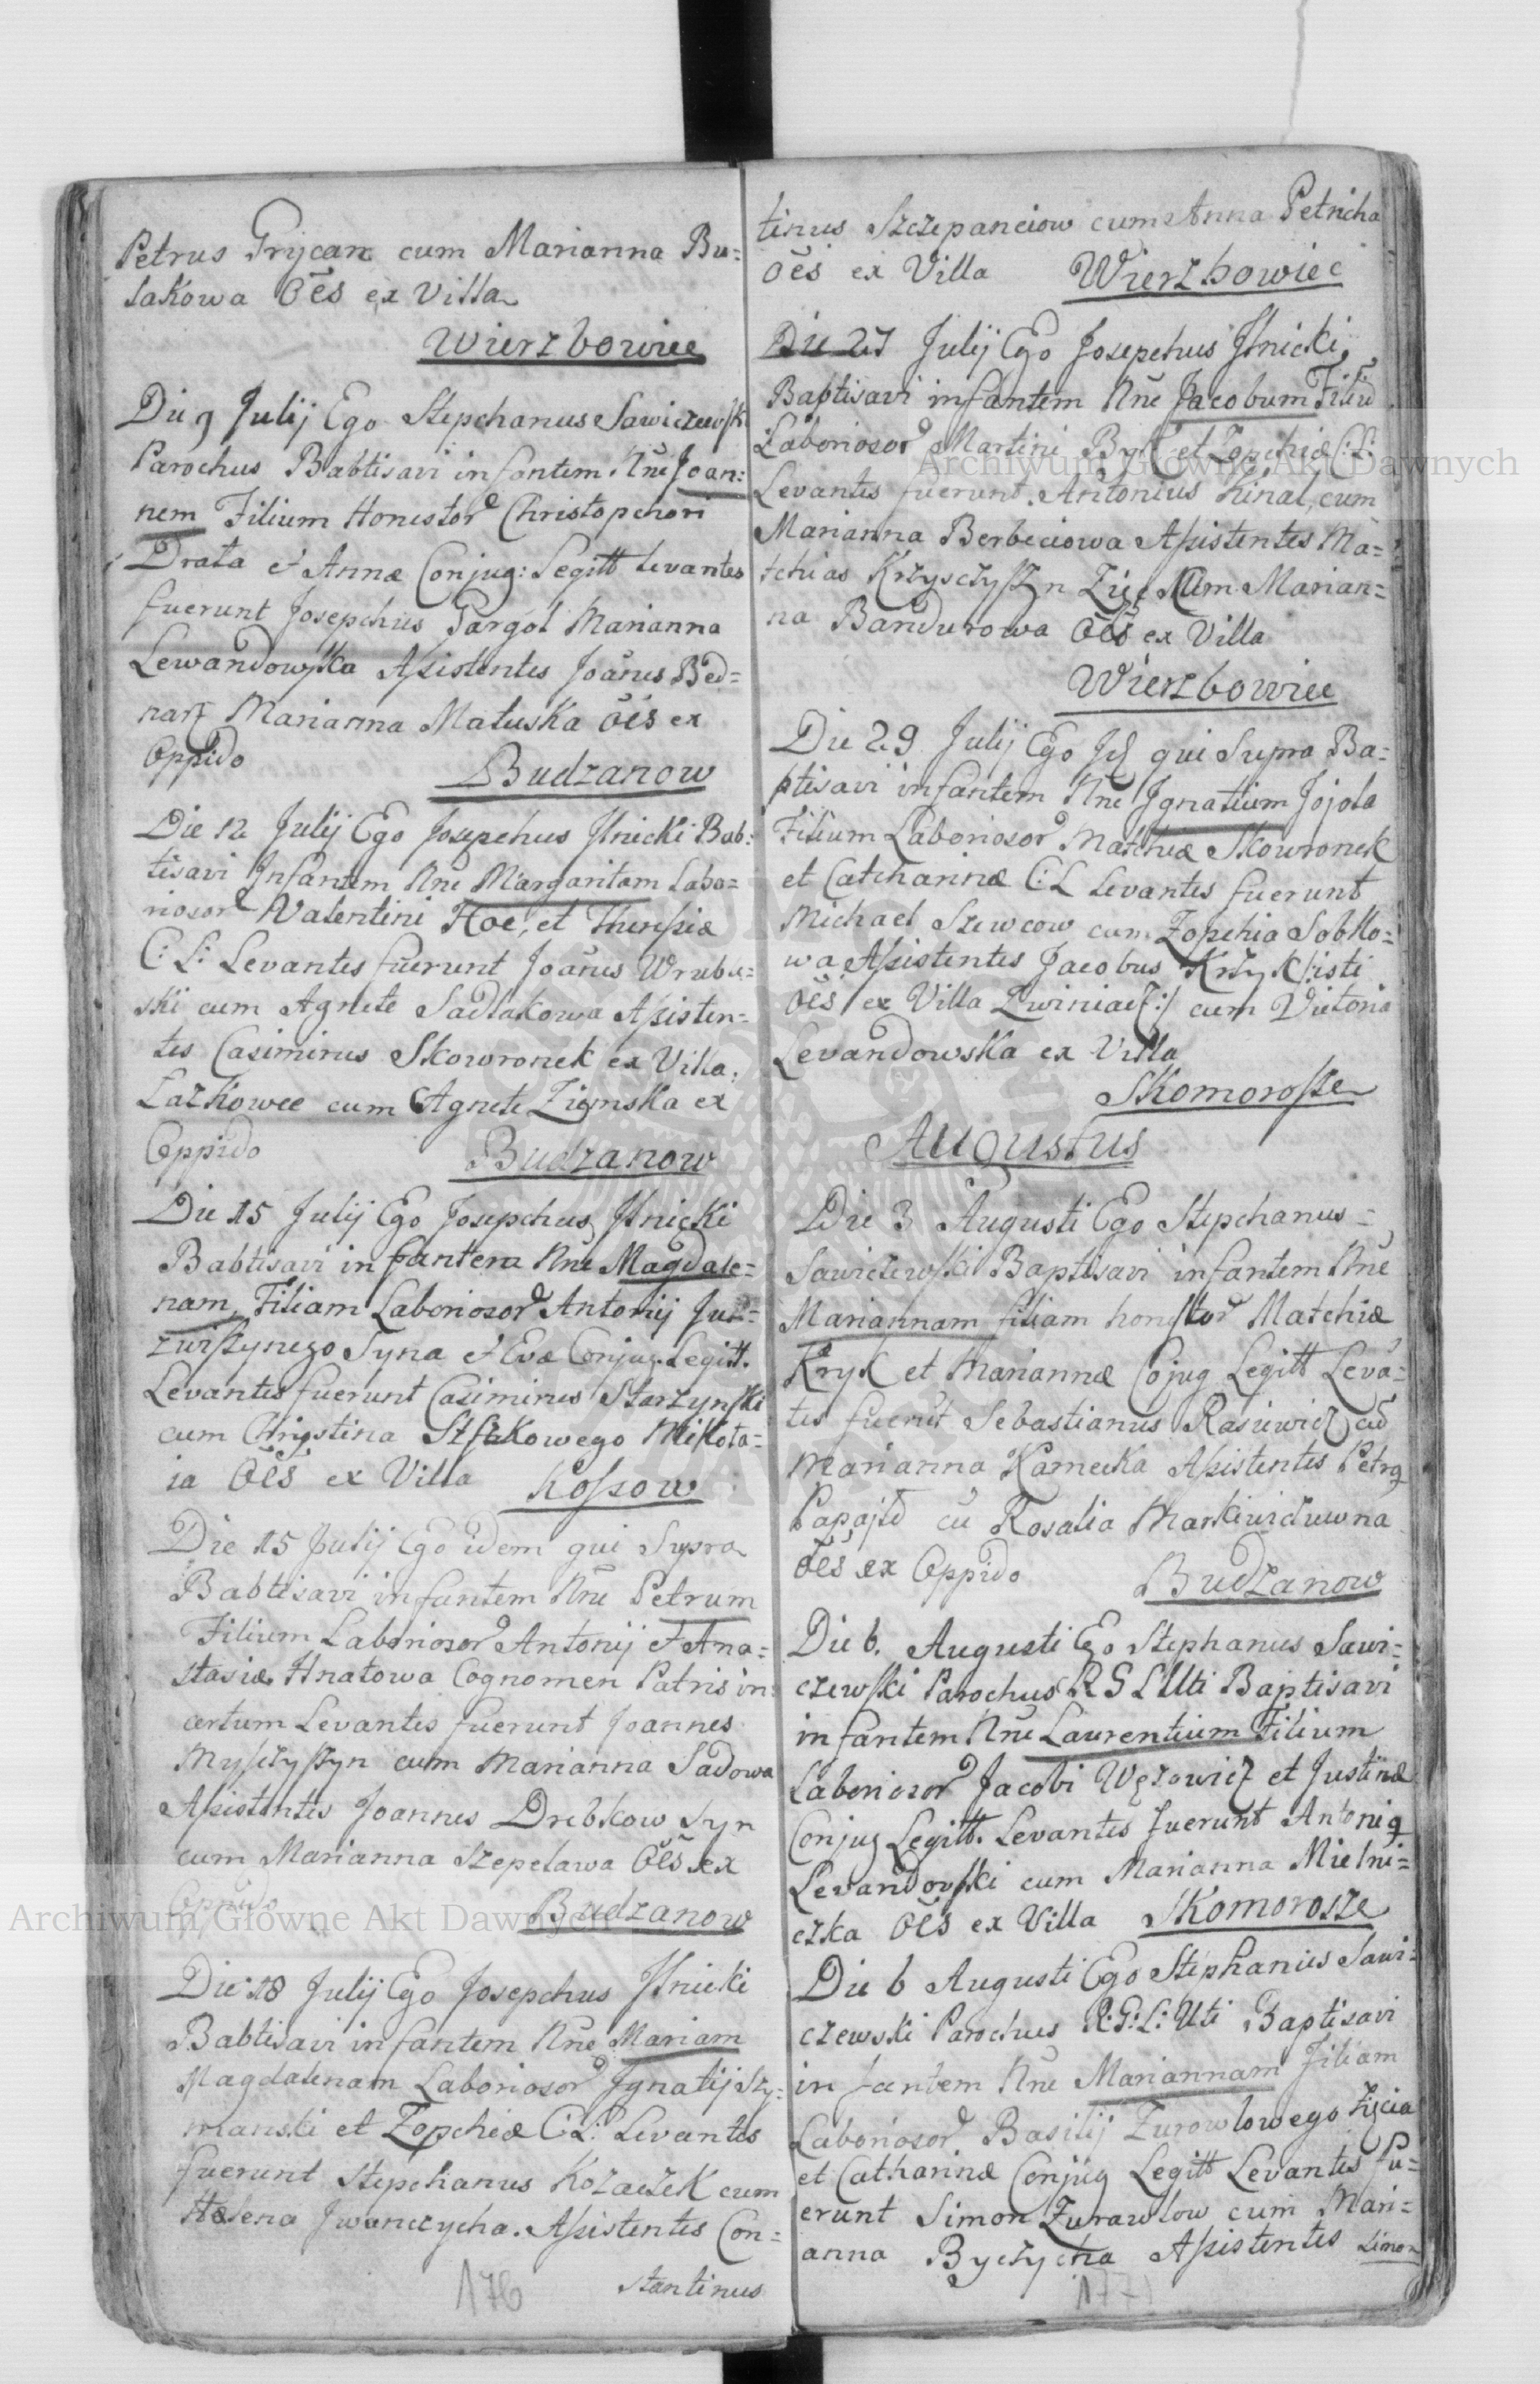 Petrus Grycan cum Marianna Bu=
lakowa Oēs ex Villa
Wierzbowiec
Die 9 Julij Ego Stepchanus Sawiczewski
Parochus Babtisavi infantem Nne Joan=
nem Filium Honestor Christopchori
Drata et Annæ Conjug: Legitt Levantes
fuerunt Josepchus Gargol Marianna
Lewandowska Assistentes Joanes Bed=
narz Marianna Matuska Oēs ex
Oppido Budzanow
Die 12 Julij Ego Josepchus Ilnicki Bab:
tisavi Infantem Nne Margaritam Labo=
riosor Valentini Hoc, et Theresiæ
C: L: Levantes fuerunt Joanes Wrubu=
ski cum Agnete Sadlakowa Assisten=
tes Casimirus Skowronek ex Villa
Lazkowce cum Agnete Ziemska ex
Oppido Budzanow
Die 15 Julij Ego Josepchus Ilnicki
Babtisavi infantem Nne Magdale=
nam, Filiam Laboriosor Antonij
Syna et Evæ Conjug. Legitt.
Levantes fuerunt Casimirus Starzynski
cum Christina Mikola=
ia Oēs ex Villa Kossow
Die 15 Julij Ego idem qui Supra
Babtisavi infantem Nne Petrum
Filium Laboriosor Antonij et Ana=
stasiæ Hnatowa Cognomen Patris in
certum Levantes fuerunt Joannes
Myszczyszyn cum Marianna Sadowa
Assistentes Joannes Drebkow Syn
cum Marianna Szepelawa Oēs ex
Oppido Budzanow
Die 18 Julij Ego Josepchus Ilnicki
Babtisavi infantem Nne Mariam
Magdalenam Laboriosor Jgnatij Szy=
manski et Zopchiæ C: L: Levantes
fuerunt Stepchanus Kozaczek cum
Helena Jwanczycha. Assistentes Con=
stantinus
176
tinus Szczepanciow cum Anna Petricha
oēs ex Villa Wierzbowiec
Die 27 Julij Ego Josepchus Ilnicki
Baptisavi infantem Nne Jacobum Filiū
Laboriosor Martini Byk et Zopchiæ C: L:
Levantes fuerunt. Antonius Kinal, cum
Marianna Berbeciowa Assistentes Ma=
tchias Krzysczyszyn Zięc cum Marian=
na Bandurowa Oēs ex Villa
Wierzbowiec
Die 29 Julij Ego Jd qui Supra Ba=
ptisavi infantem Nne Jgnatium Jojola
Filium Laboriosor Matchiæ Skowronek
et Catcharinæ C: L Levantes fuerunt
Michael Szewcow cum Zopchia Sobko=
wa Assistentes Jacobus
oēs ex Villa Zwiniacz :/ cum Victoria
Levandowska ex Villa
Skomorosze
Augustus
Die 3 Augusti Ego Stepchanus
Sawiczewski Baptisavi infantem Nne
Mariannam filiam honestor Matchiæ
Kryk et Mariannæ Cojug Legitt Levā=
tes fuerūt Sebastianus Rasiewicz cū
Marianna Kamecka Assistentes Petrq
cū Rosalia Markiwiczuwna
oēs ex Oppido Budzanow
Die 6. Augusti Ego Stephanus Sawi=
czewski Parochus R G L Uti Baptisavi
infantem Nne Laurentium Filium
Laboriosor Jacobi Węzowicz et Justinæ
Conjug Legitt. Levantes fuerunt Antoniq
Levandovski cum Marianna Mielni=
czka Oēs ex Villa Skomorosze
Die 6 Augusti Ego Stephanus Sawi=
czewski Parochus R: G: L: Uti Baptisavi
infantem Nne Mariannam Filiam
Laboriosor Basilij Zurowlowego Zięcia
et Catharinæ Conjug Legitt Levantes fu=
erunt Simon Zurawlow cum Mari=
anna Byczycha Assistentes Simon
177
Archiwum Główne Akt Dawnych
Archiwum Główne Akt Dawnych